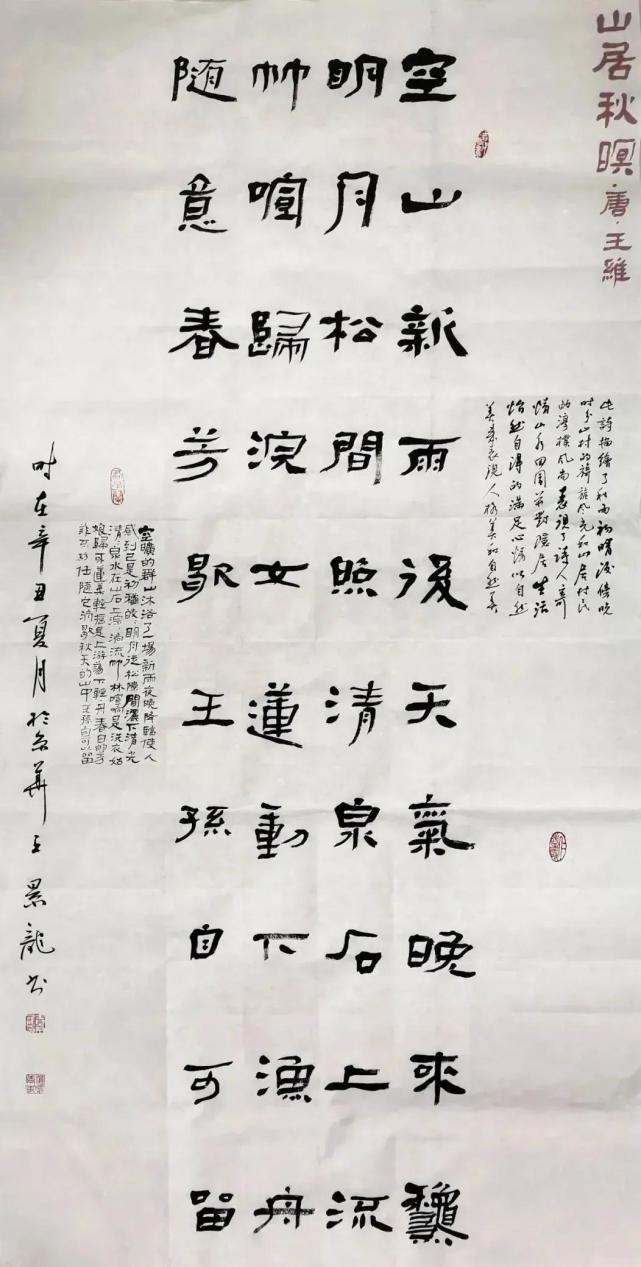 山居秋暝·唐·王維
空山新雨後天氣晚來龝
明月松間照清泉石上流
竹喧歸浣女蓮動下漁舟
随意春芳歇王孫自可留
此詩描繪了秋雨初晴後傍晚
时分山村的旖旎风光和山居村民
的淳樸风尚表現了詩人寄
情山水田園並對隱居生活
怡然自得的滿足心情以自然
美來表現人格美和自然美
空曠的群山沐浴了一場新雨夜晚降臨使人
感到已是初龝皎皎明月從松隙間灑下清光
清清泉水在山石上淙淙淌流竹林喧响是洗衣姑
娘歸來蓮葉輕搖是上游蕩下輕舟春日的芳
菲不妨任隨它消歇秋天的山中王孫自可以留
时在辛丑夏月於華王景龍书